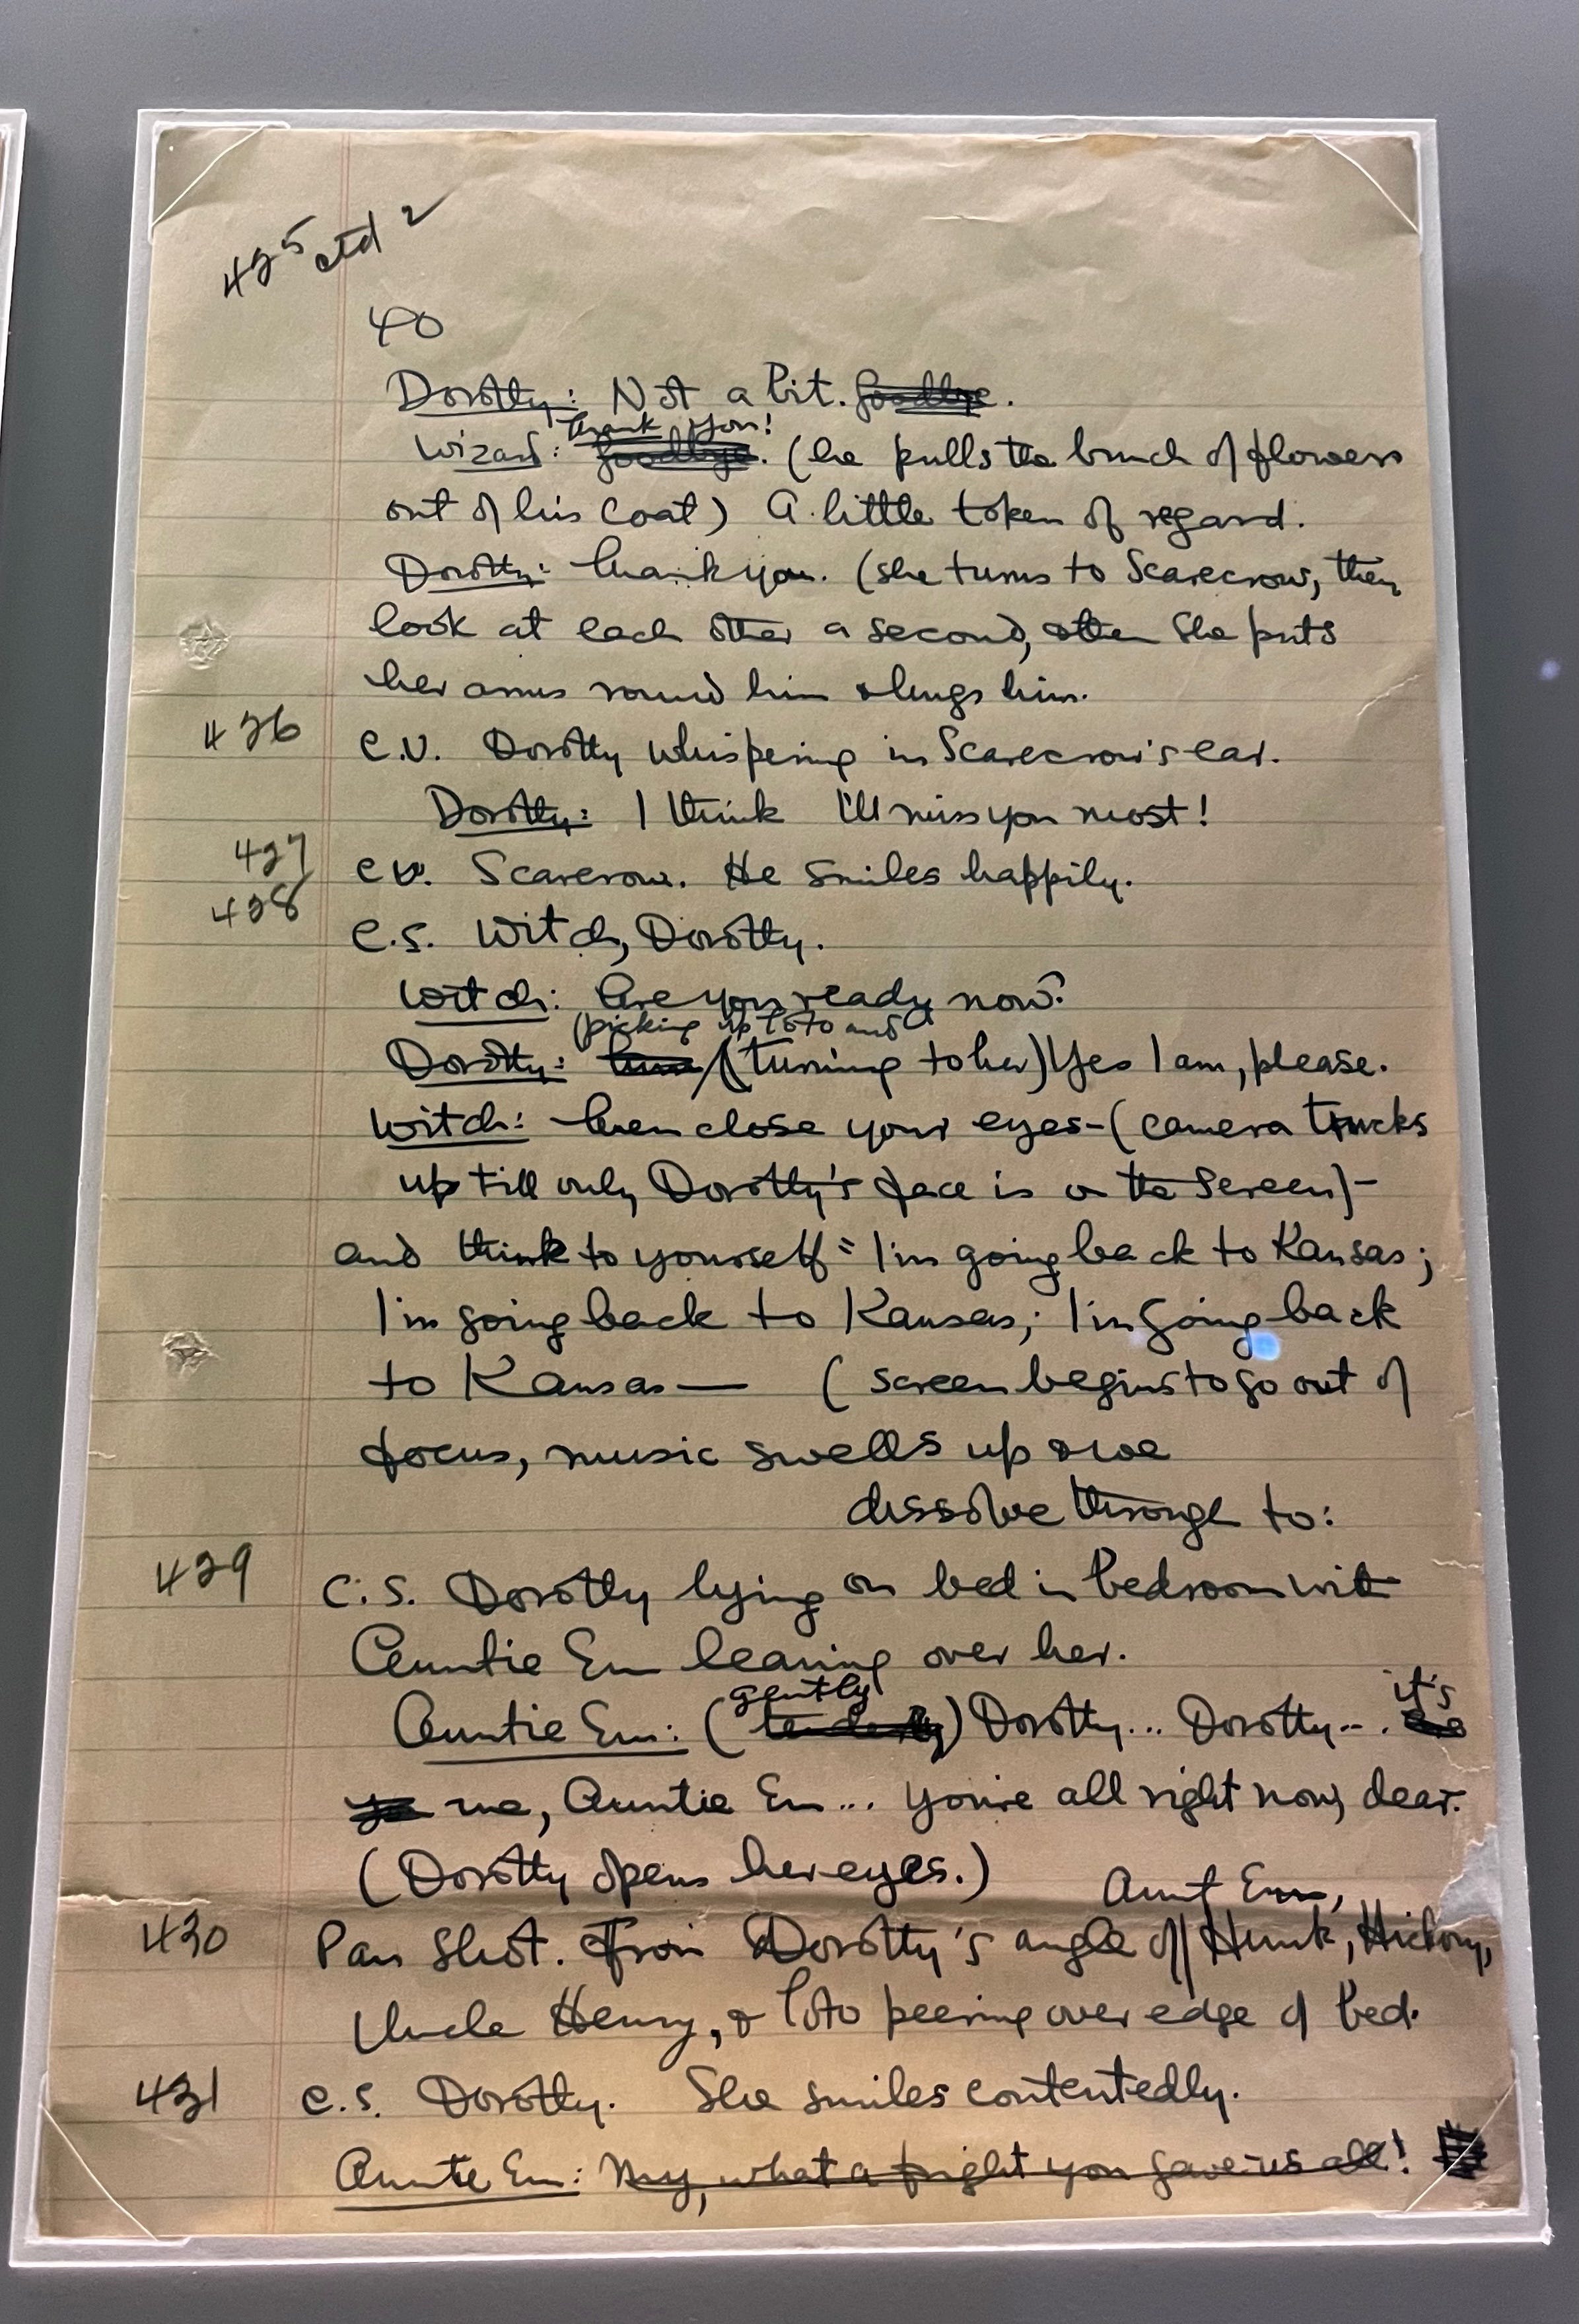 425 ctd 2
40
Dorothy: Not a bit. Goodbye.
Thank you!
Wizard: Goodbye. (he pulls the bunch of flowers
out of his coat) A little token of regard.
Dorothy: Thank you. (she turns to Scarecrow, they
look at each other a second, then she puts
her arms round him & hugs him.
426 C.U. Dorothy whispering in Scarecrow's ear.
Dorothy: I think I'll miss you most!
427 C.U. Scarecrow. He smiles happily.
428 C.S. Witch, Dorothy.
Witch: Are you ready now?
(picking up Toto and
Dorothy: (turning to her) Yes I am, please.
Witch: Then close your eyes - (camera trucks
up till only Dorothy's face is on the screen) -
and think to yourself = I'm going back to Kansas;
I'm going back to Kansas; I'm going back
to Kansas — (screen begins to go out of
focus, music swells up & we
dissolve through to:
429 C.S. Dorothy lying on bed in bedroom with
Auntie Em leaning over her.
gently it's
Auntie Em: (tenderly) Dorothy... Dorothy...
me, Auntie Em... you're all right now, dear.
(Dorothy opens her eyes.)
Aunt Em,
430 Pan Shot. From Dorothy's angle of Hunk, Hickory,
Uncle Henry, & Toto peering over edge of bed.
431 C.S. Dorothy. She smiles contentedly.
Auntie Em: My, what a fright you gave us all!